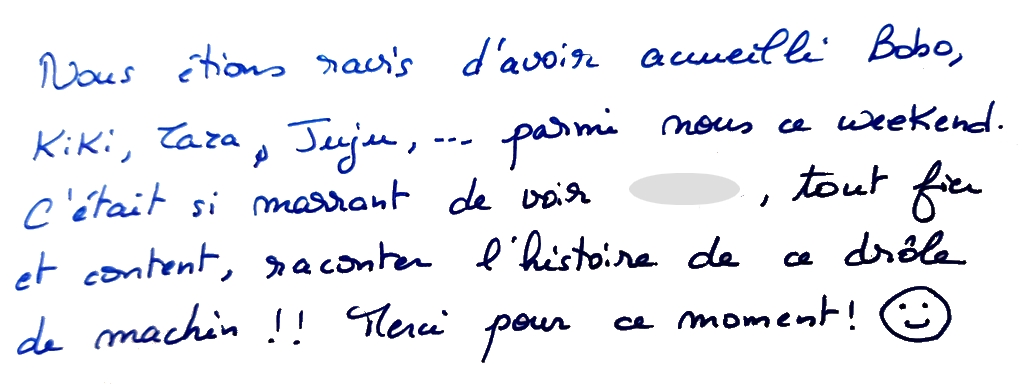 Nous étions ravis d'avoir accueilli Bobo,
Kiki, Zaza, Juju, --- parmi nous ce weekend.
C'était si marrant de voir , tout fier
et content, raconter l'histoire de ce drôle
de machin !! Merci pour ce moment! ☺